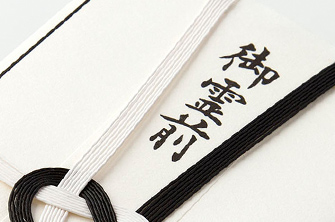 御霊前